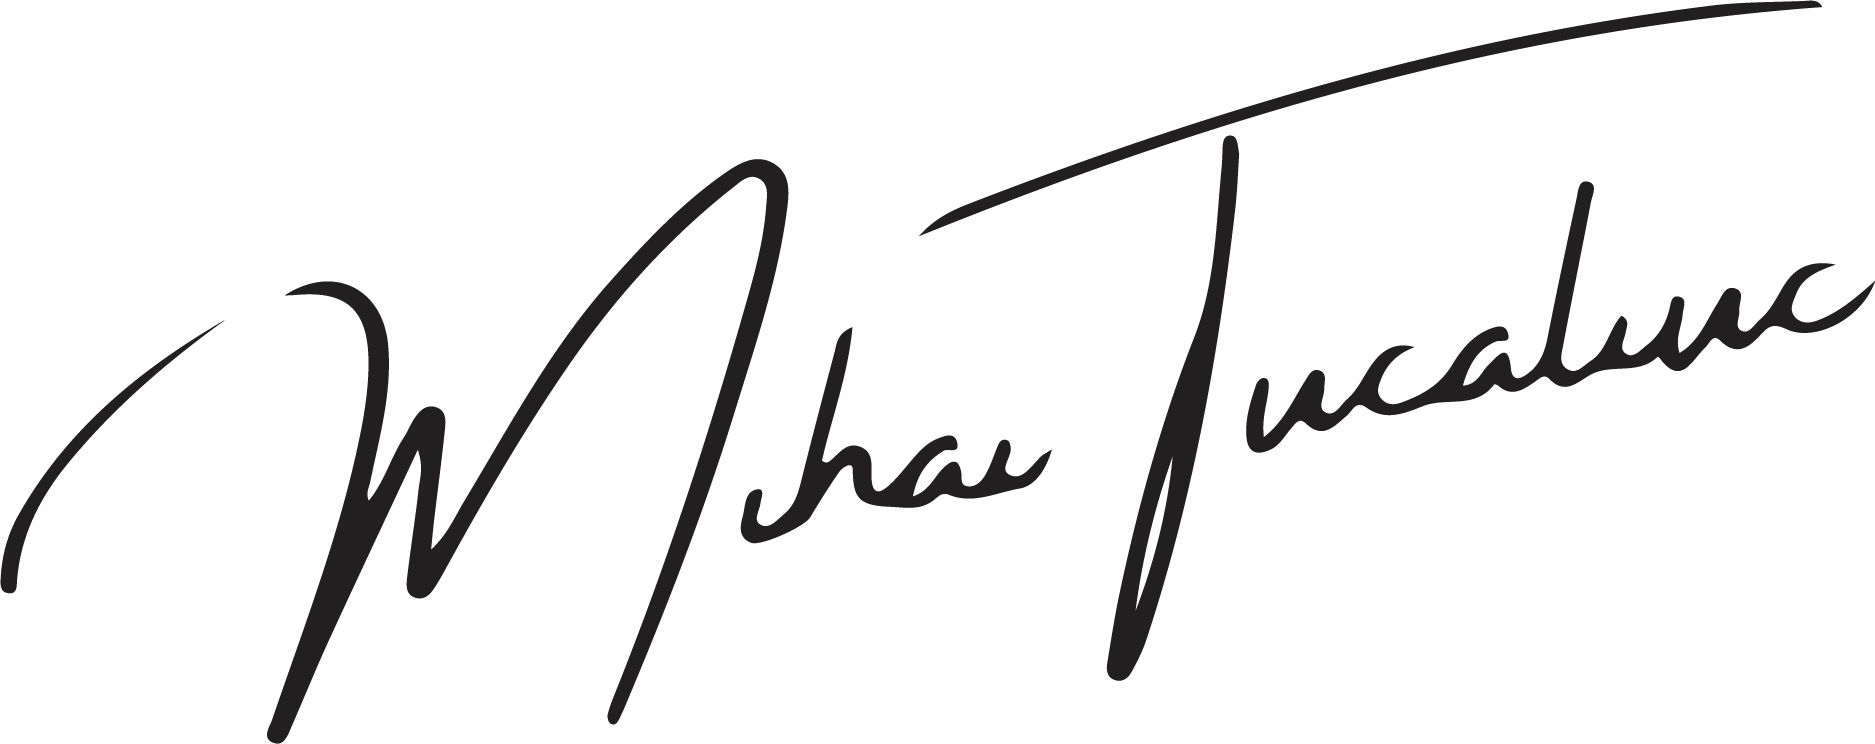 Mihai Tucaliuc